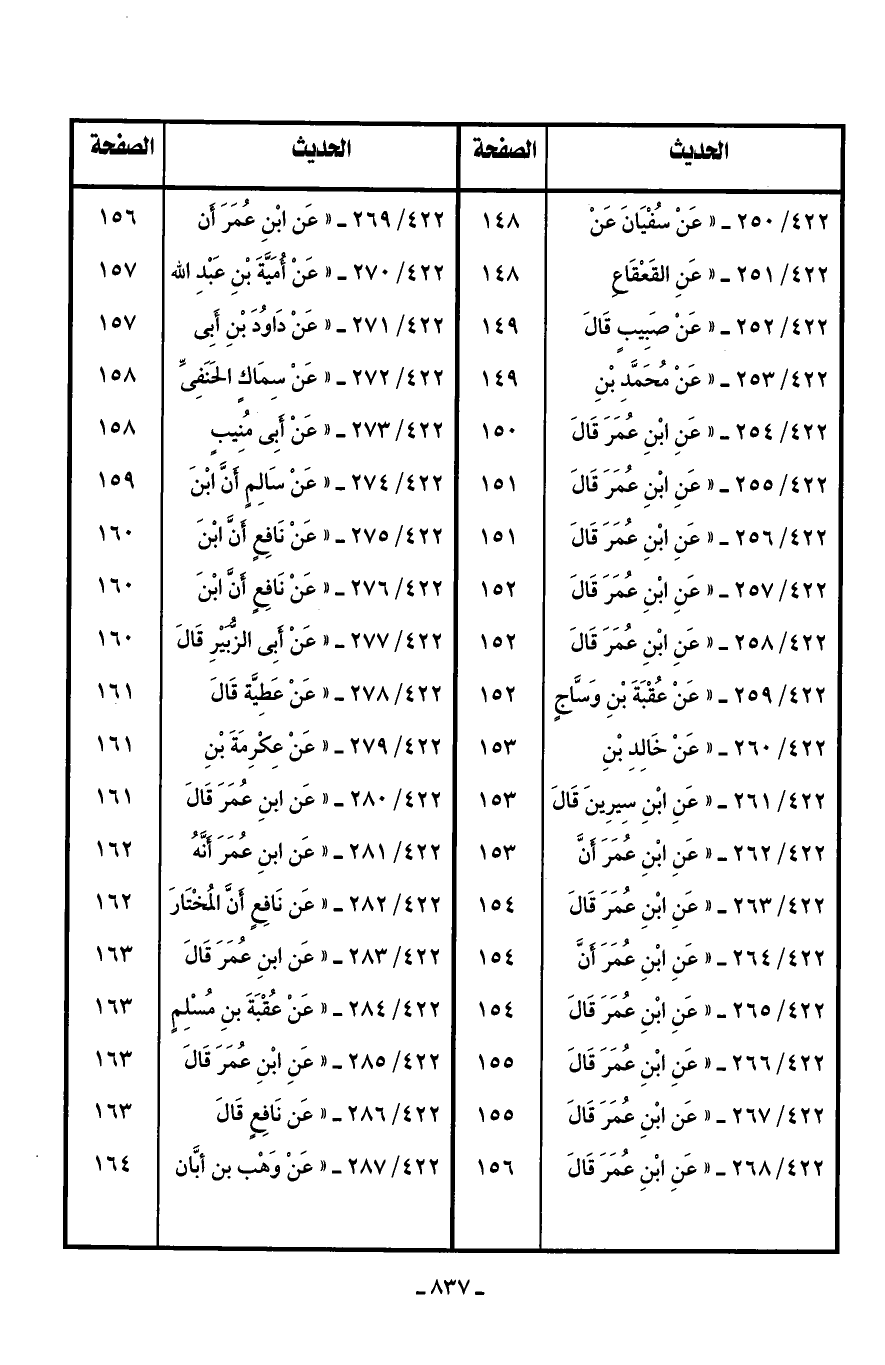 الحديث الصفحة الحديث الصفحة
٤٢٢/ ٢٥٠ ـ « عَنْ سُفْيَانَ عَنْ ١٤٨ ٤٢٢/ ٢٦٩ ـ « عَن ابْنِ عُمَرَ أن ١٥٦
٤٢٢/ ٢٥١ ـ « عَنِ القَعْقَاعِ ١٤٨ ٤٢٢/ ٢٧٠ ـ « عَنْ أُمَيَّةَ بْنِ عَبْدِ الله ١٥٧
٤٢٢/ ٢٥٢ ـ « عَنْ صَبِيبٍ قَالَ ١٤٩ ٤٢٢/ ٢٧١ ـ « عَنْ دَاوُدَ بْنِ أَبى ١٥٧
٤٢٢/ ٢٥٣ ـ « عَنْ مُحَمَّدِ بْنِ ١٤٩ ٤٢٢/ ٢٧٢ ـ « عَنْ سِمَاكٍ الحَنَفِىِّ ١٥٨
٤٢٢/ ٢٥٤ ـ « عَنِ ابْنِ عُمَرَ قَالَ ١٥٠ ٤٢٢/ ٢٧٣ ـ « عَنْ أَبِى مُنِيبٍ ١٥٨
٤٢٢/ ٢٥٥ ـ « عَنِ ابْنِ عُمَرَ قَالَ ١٥١ ٤٢٢/ ٢٧٤ ـ « عَنْ سَالِمٍ أَنَّ ابْنَ ١٥٩
٤٢٢/ ٢٥٦ ـ « عَنِ ابْنِ عُمَرَ قَالَ ١٥١ ٤٢٢/ ٢٧٥ ـ « عَنْ نَافِعٍ أَنَّ ابْنَ ١٦٠
٤٢٢/ ٢٥٧ ـ « عَنِ ابْنِ عُمَرَ قَالَ ١٥٢ ٤٢٢/ ٢٧٦ ـ « عَنْ نَافِعٍ أَنَّ ابْنَ ١٦٠
٤٢٢/ ٢٥٨ ـ « عَنِ ابْنِ عُمَرَ قَالَ ١٥٢ ٤٢٢/ ٢٧٧ ـ « عَنْ أَبِى الزُّبَيْرِ قَالَ ١٦٠
٤٢٢/ ٢٥٩ ـ « عَنْ عُقْبَةَ بْنِ وَسَّاجٍ ١٥٢ ٤٢٢/ ٢٧٨ ـ « عَنْ عَطِيَّةَ قَالَ ١٦١
٤٢٢/ ٢٦٠ ـ « عَنْ خَالِدِ بْنِ ١٥٣ ٤٢٢/ ٢٧٩ ـ « عَنْ عِكْرِمَةَ بْنِ ١٦١
٤٢٢/ ٢٦١ ـ « عَنِ ابْنِ سِيرِينَ قَالَ ١٥٣ ٤٢٢/ ٢٨٠ ـ « عَنِ ابنِ عُمَرَ قَالَ ١٦١
٤٢٢/ ٢٦٢ ـ « عَنِ ابْنِ عُمَرَ أَنَّ ١٥٣ ٤٢٢/ ٢٨١ ـ « عَن ابنِ عُمَرَ أَنَّهُ ١٦٢
٤٢٢/ ٢٦٣ ـ « عَنِ ابْنِ عُمَرَ قَالَ ١٥٤ ٤٢٢/ ٢٨٢ ـ « عَن نَافِعٍ أَنَّ المُخْتَارَ ١٦٢
٤٢٢/ ٢٦٤ ـ « عَنِ ابْنِ عُمَرَ أَنَّ ١٥٤ ٤٢٢/ ٢٨٣ ـ « عَن ابنِ عُمَرَ قَالَ ١٦٣
٤٢٢/ ٢٦٥ ـ « عَنِ ابْنِ عُمَرَ قَالَ ١٥٤ ٤٢٢/ ٢٨٤ ـ « عَنْ عُقْبَةَ بنِ مُسْلِمٍ ١٦٣
٤٢٢/ ٢٦٦ ـ « عَنِ ابْنِ عُمَرَ قَالَ ١٥٥ ٤٢٢/ ٢٨٥ ـ « عَنِ ابْنِ عُمَرَ قَالَ ١٦٣
٤٢٢/ ٢٦٧ ـ « عَنِ ابْنِ عُمَرَ قَالَ ١٥٥ ٤٢٢/ ٢٨٦ ـ « عَن نَافِعٍ قَالَ ١٦٣
٤٢٢/ ٢٦٨ ـ « عَنِ ابْنِ عُمَرَ قَالَ ١٥٦ ٤٢٢/ ٢٨٧ ـ « عَنْ وَهْبِ بن أبَّان ١٦٤
ـ ٨٣٧ ـ